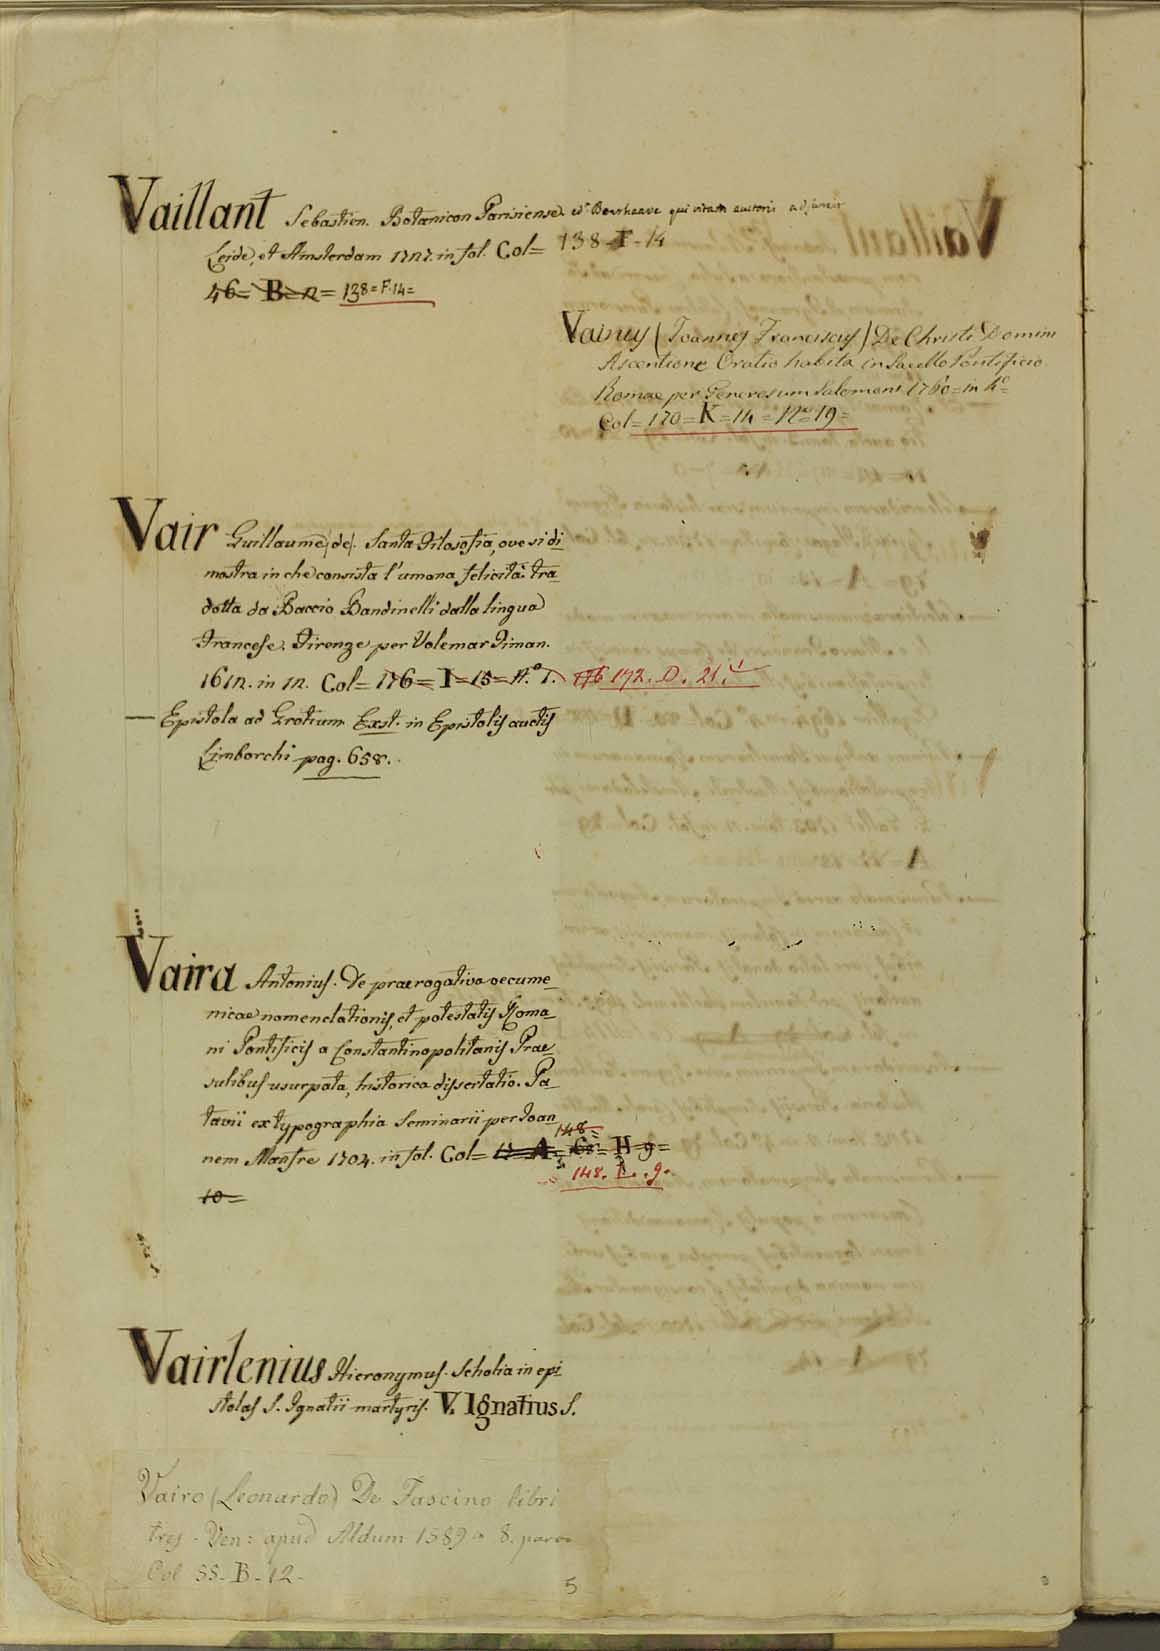 Vaillant Sebastien. Botanicon Parisiense ed. Boerheave qui vitam auctoris adjunxit
Leide, et Amsterdam 1727. in fol. Col= 138-F-14
46= B= 12= 138=F.14=
Vainuy (Joannes Franciscus) De Christi Domini
Ascentione Oratio habita in Sacello Pontificio
Romae per Generosum Salomoni 1760= in 4º
Col= 170= K= 14= Nº 19=
Vair Guillaume (de). Santa Filosofia, ove si di
mostra in che consista l'umana felicità: tra
dotta da Baccio Bandinelli dalla lingua
Francese. Firenze per Volcmar Timan.
1612. in 12. Col= 176= I= 15= Nº 1. 176 172. D. 21.
— Epistola ad Grotium. Exst. in Epistolis auctis
Limborchi pag. 658.
Vaira Antonius. De praerogativa oecume
nicae nomenclationis, et potestatis Roma
ni Pontificis a Constantinopolitanis Prae
sulibus usurpata, historica dissertatio. Pa
tavii ex typographia Seminarii per Joan
148=
nem Manfre 1704. in fol. Col= 12= A= 68= H 9=
148. L. 9.
10=
Vairlenius Hieronymus. Scholia in epi
stolas S. Ignatii martyris. V. Ignatius S.
Vairo (Leonardo) De Fascino libri
tres. Ven: apud Aldum 1589 in 8. parvo
Col 55- B- 12-
5